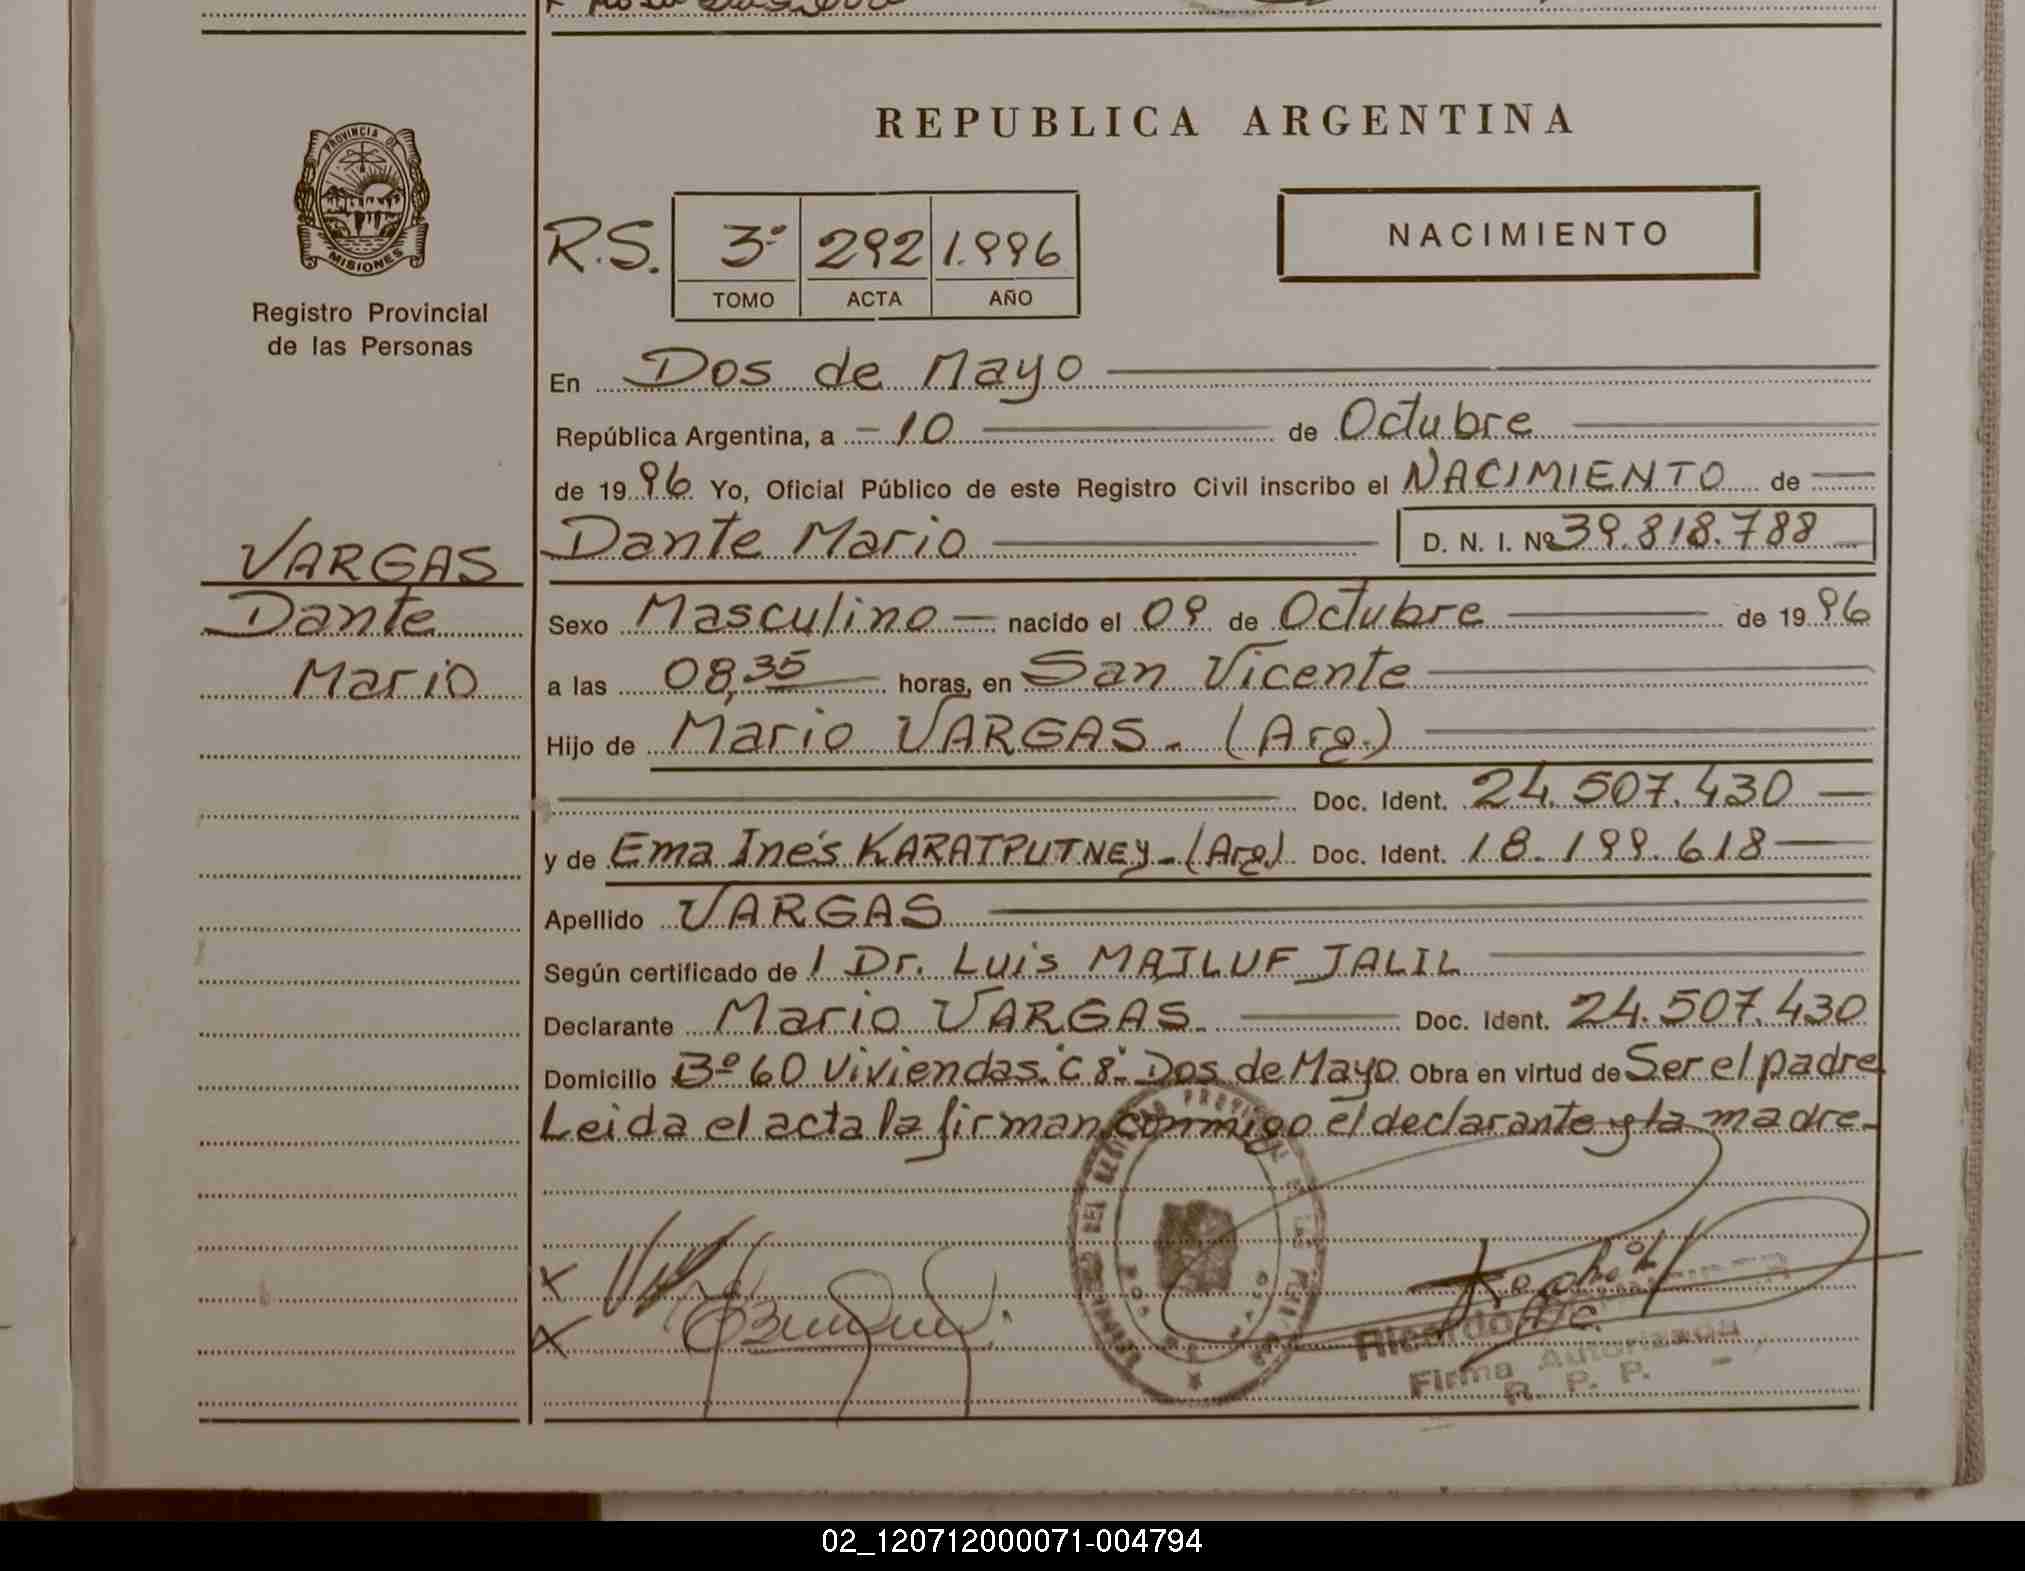 PROVINCIA DE
MISIONES
Registro Provincial
de las Personas
VARGAS
Dante
Mario
REPUBLICA ARGENTINA
R.S. 3º 292 1.996
TOMO ACTA AÑO
NACIMIENTO
En Dos de Mayo
República Argentina, a 10 de Octubre
de 1996 Yo, Oficial Público de este Registro Civil inscribo el NACIMIENTO de
Dante Mario D. N. I. Nº 39.818.788
Sexo Masculino nacido el 09 de Octubre de 1996
a las 08,35 horas, en San Vicente
Hijo de Mario VARGAS. (Arg.)
Doc. Ident. 24.507.430
y de Ema Inés KARATPUTNEY (Arg) Doc. Ident. 18.199.618
Apellido VARGAS
Según certificado de l Dr. Luis MAJLUF JALIL
Declarante Mario VARGAS. Doc. Ident. 24.507.430
Domicilio Bº 60 Viviendas "C 8" Dos de Mayo Obra en virtud de Ser el padre
Leida el acta la firman conmigo el declarante y la madre
Ricardo
Firma Autorizada
R. P. P.
02_120712000071-004794